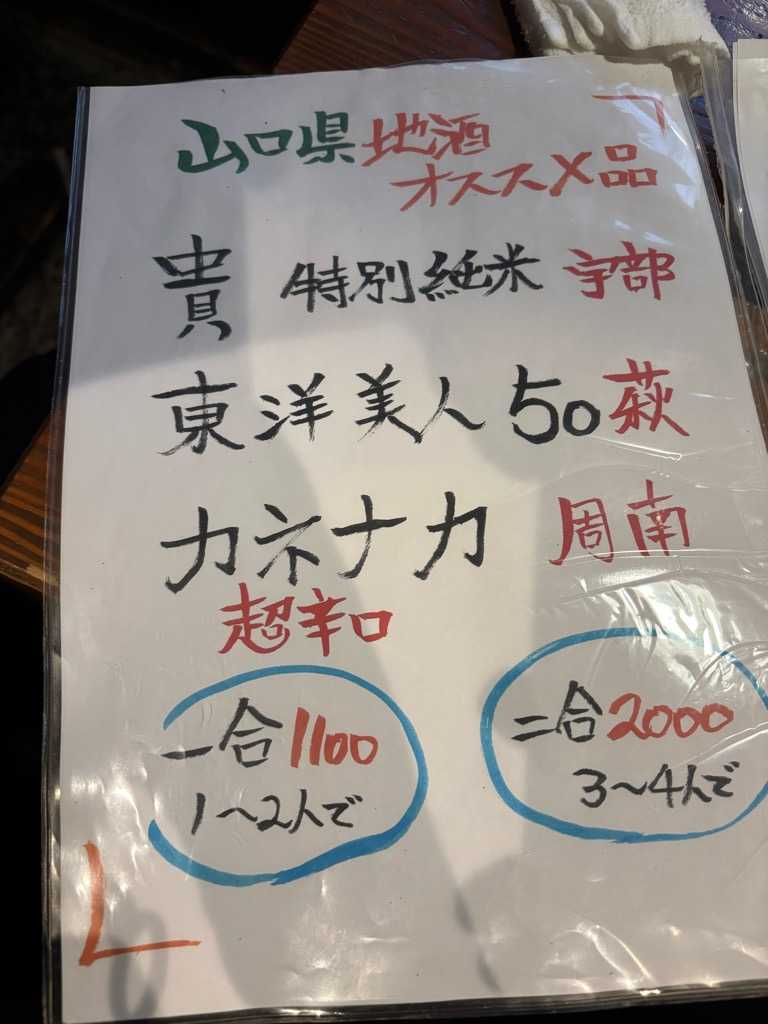 山口県地酒
オススメ品
貴 特別純米 宇部
東洋美人 50 萩
カネナカ 周南
超辛口
一合1100
1〜2人で
二合2000
3〜4人で